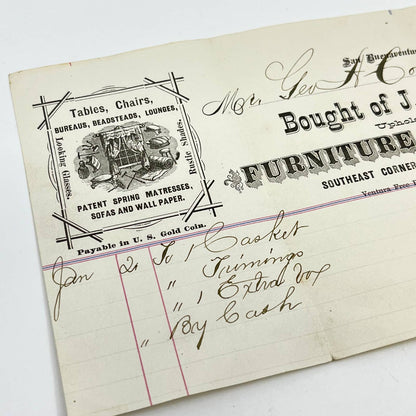 Tables, Chairs,
BUREAUS, BEADSTEADS, LOUNGES,
Looking Glasses,
Rustic Shades,
PATENT SPRING MATRESSES,
SOFAS AND WALL PAPER.
Payable in U. S. Gold Coin.
San Buenaventur
Mr Geo A Co
Bought of J.
Uphol
FURNITURE
SOUTHEAST CORNER
Ventura Free
Jan 21 To 1 Casket
" Trimings
" 1 Extra box
" By Cash